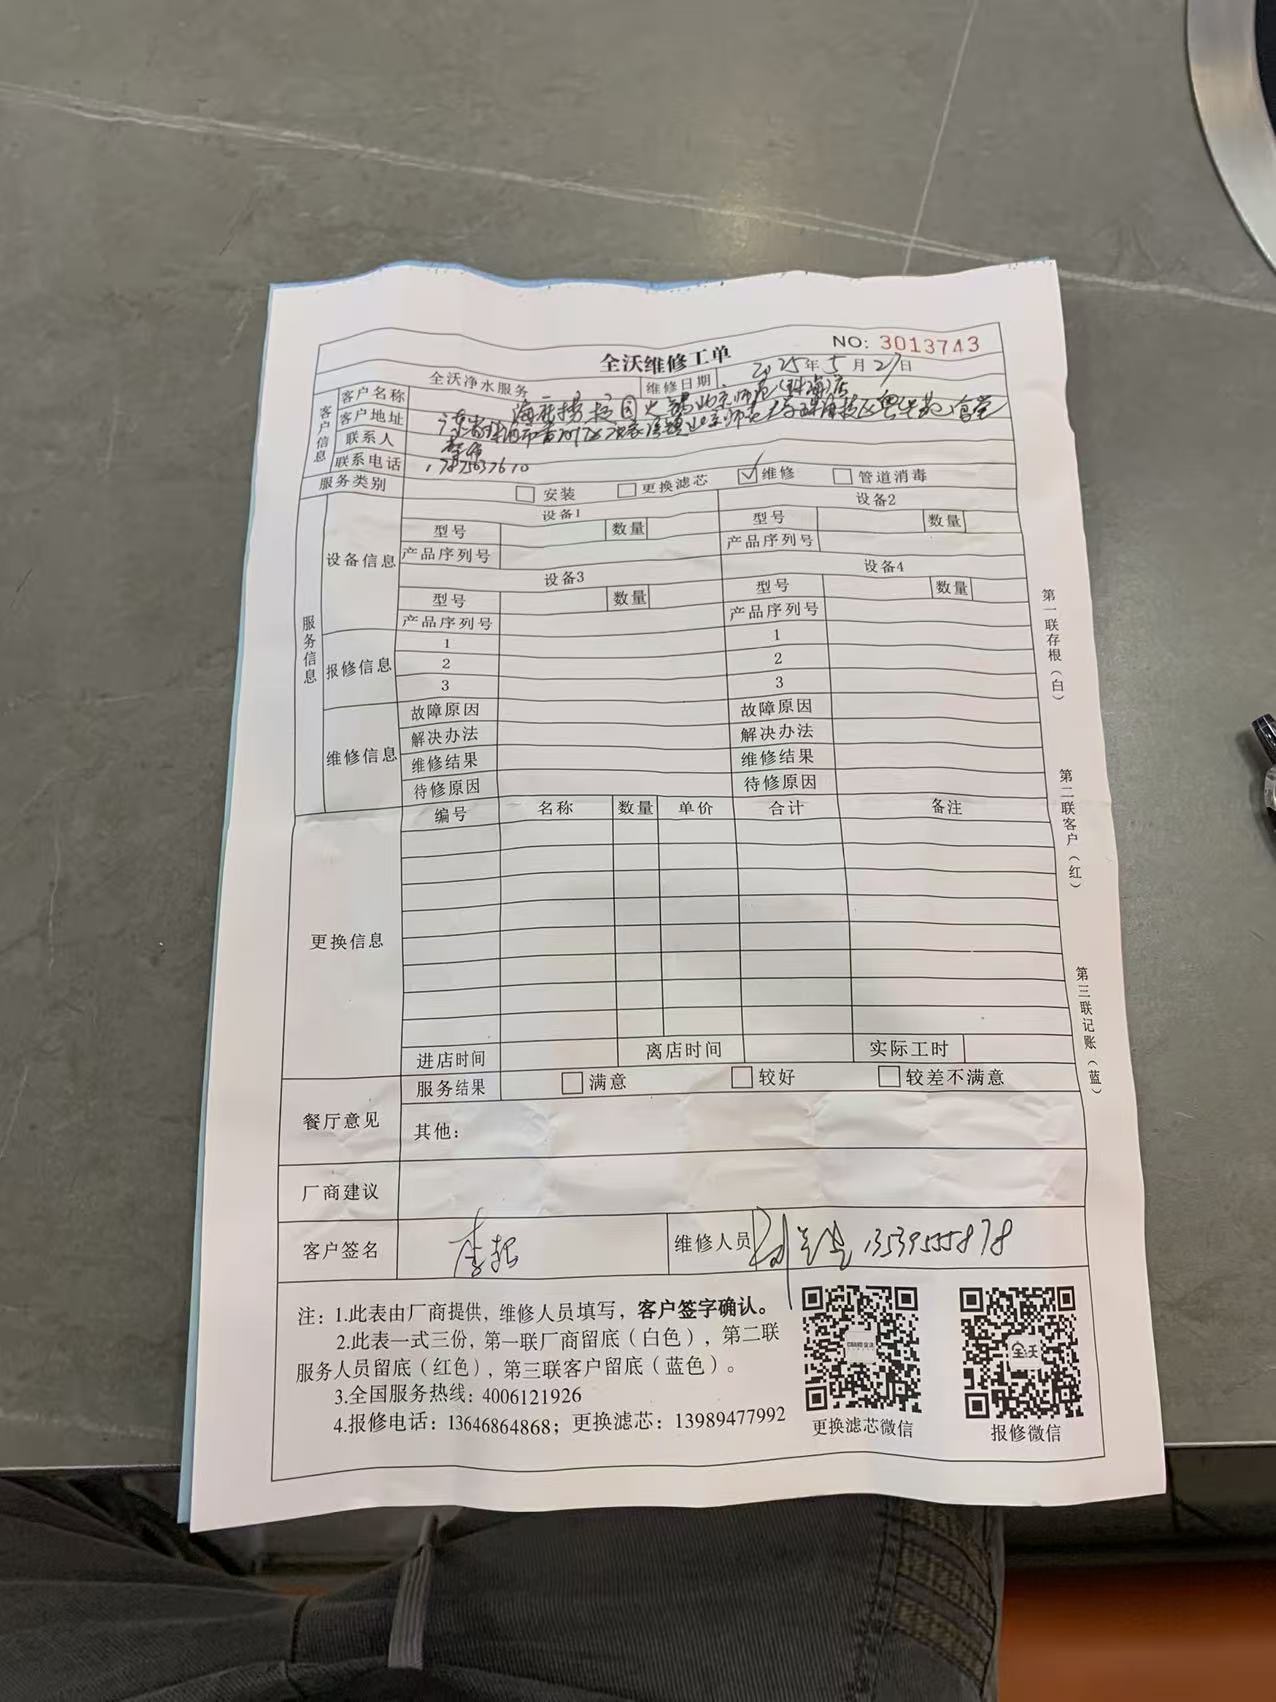 NO: 3013743
全沃维修工单
全沃净水服务 维修日期 2025年5月27日
客户信息
客户名称 海底捞 火锅北京师范(珠海)店
客户地址 广东省珠海市香洲区唐家湾镇北京师范大学珠海校区粤华苑 食堂
联系人
联系电话
服务类别 安装 更换滤芯 ✓维修 管道消毒
服务信息
设备信息
设备1 设备2
型号 数量 型号 数量
产品序列号 产品序列号
设备3 设备4
型号 数量 型号 数量
产品序列号 产品序列号
报修信息
1 1
2 2
3 3
维修信息
故障原因 故障原因
解决办法 解决办法
维修结果 维修结果
待修原因 待修原因
更换信息
编号 名称 数量 单价 合计 备注
进店时间 离店时间 实际工时
餐厅意见
服务结果 满意 较好 较差不满意
其他：
厂商建议
客户签名 维修人员 13539555878
注：1.此表由厂商提供，维修人员填写，客户签字确认。
2.此表一式三份，第一联厂商留底（白色），第二联
服务人员留底（红色），第三联客户留底（蓝色）。
3.全国服务热线：4006121926
4.报修电话：13646864868；更换滤芯：13989477992
更换滤芯微信
全沃
报修微信
第一联存根（白）
第二联客户（红）
第三联记账（蓝）